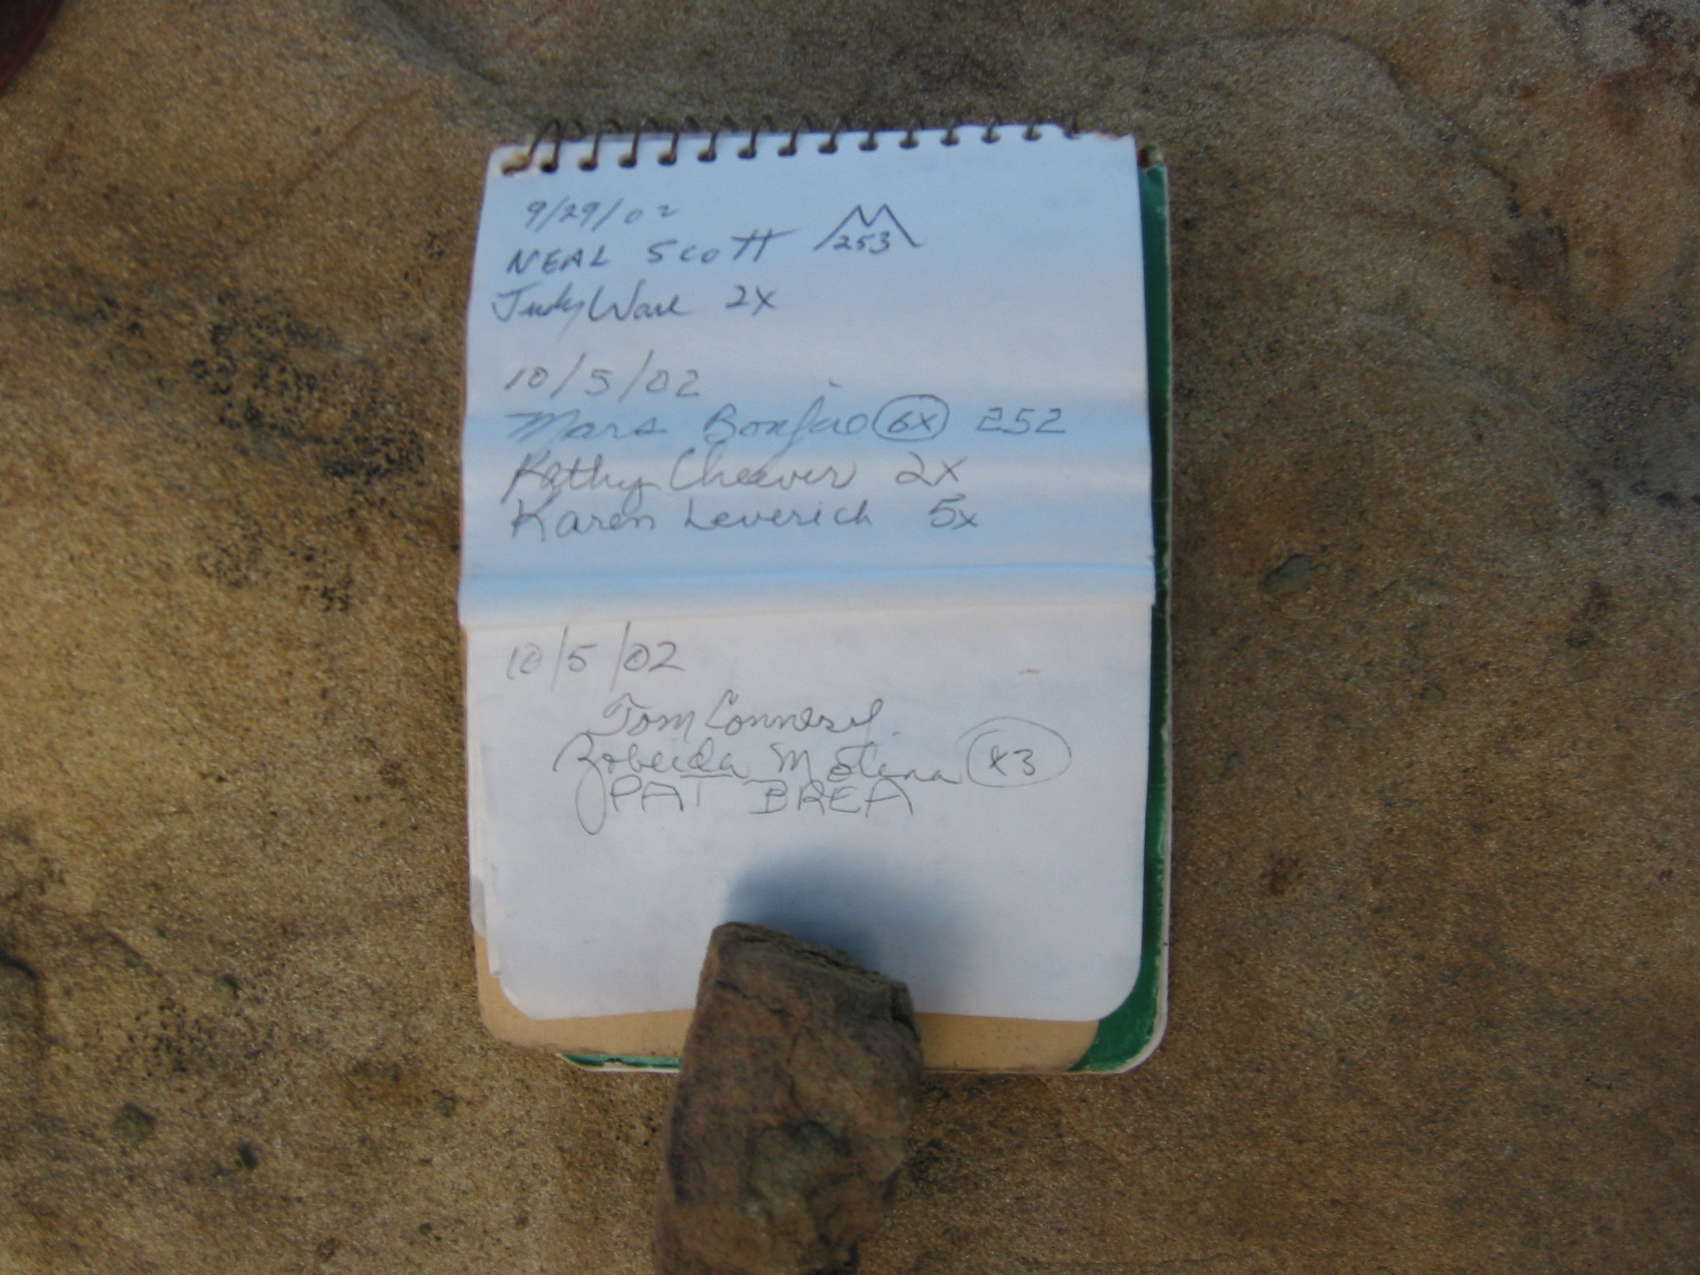 9/29/02
NEAL SCOTT 253
Judy Ware 2x
10/5/02
Mars Bonfire 6x 252
Kathy Cheever 2x
Karen Leverich 5x
10/5/02
Tom Connery
Zobeida Molina x3
PAT BREA